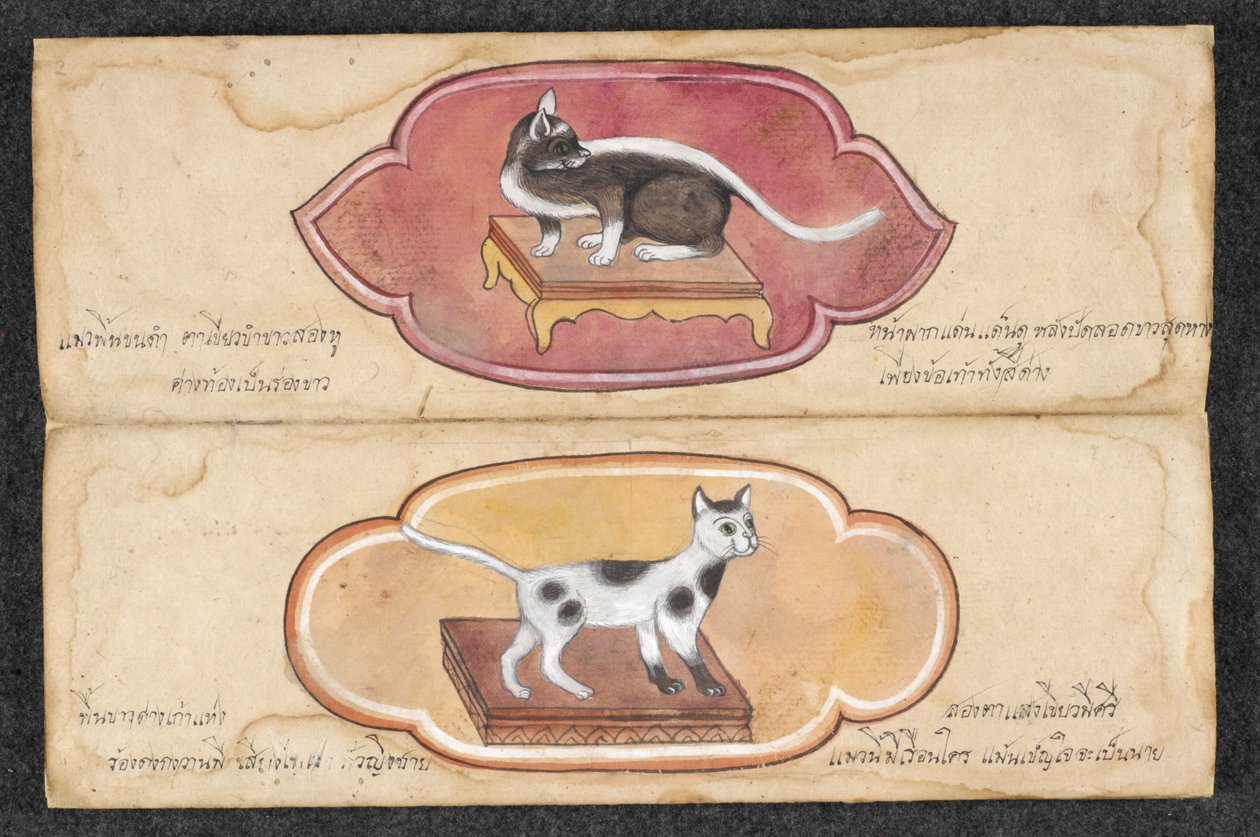 2
แมวพื้นขนดำ ตาเขียวขำขาวสองหู
ค่างท้องเป็นร่องขาว
หน้าผากแด่นแด้นดุ หลังปัดลอดขาวสุดหาง
เพียงข้อเท้าทั้งสี่ด่าง
พื้นขาวด่างเก้าแห่ง
ร้องดงกงวานมี เสียง หญิงชาย
สองตาแสงเขียวมีศรี
แมวนี้มีเรือนใคร แม้นเข็ญใจจะเป็นนาย